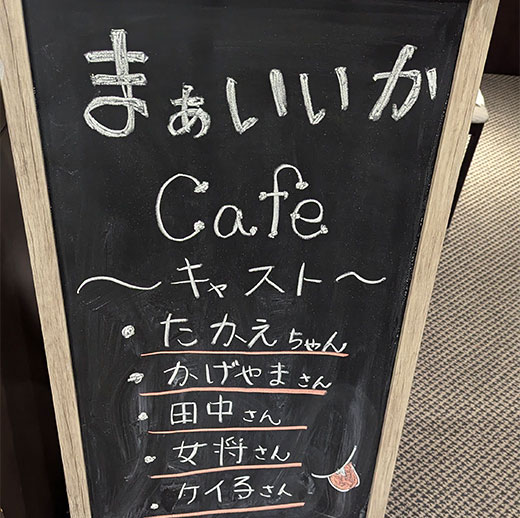 まぁいいか
Cafe
～キャスト～
・たかえちゃん
・かげやまさん
・田中さん
・女将さん
・ケイ子さん